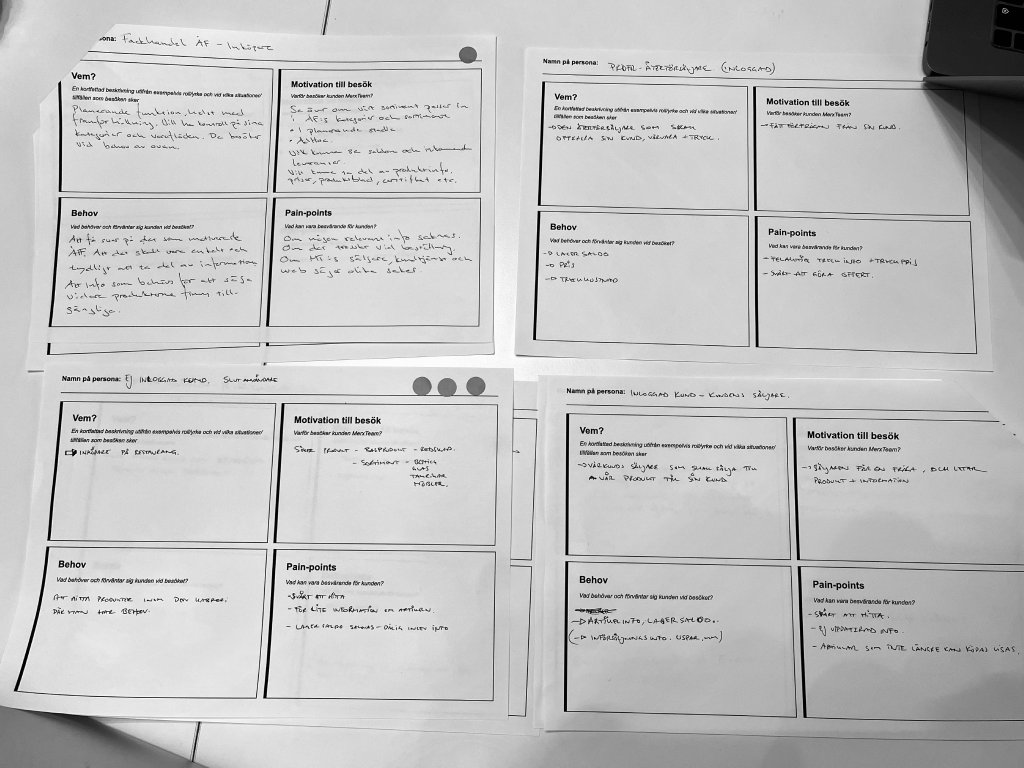 Fackhandel ÄF - Inköpare
Vem?
En kortfattad beskrivning utifrån exempelvis roll/yrke och vid vilka situationer/
tillfällen som besöken sker
Planerande funktion, helst med
framförhållning. Vill ha kontroll på sina
kategorier och varuflöden. De besöker
vid behov av ovan.
Motivation till besök
Varför besöker kunden MerxTeam?
Se över om vårt sortiment passar in
i ÄF:s kategorier och sortiment
• I planerande skede
• AdHoc.
Vill kunna se saldon och inkommande
leveranser.
Vill kunna ta del av produktinfo,
priser, produktblad, certifikat etc.
Behov
Vad behöver och förväntar sig kunden vid besöket?
Att få svar på det som motiverade
ÄF. Att det skall vara enkelt och
tydligt att ta del av information
Att info som behövs för att sälja
vidare produkterna finns till-
gängliga.
Pain-points
Vad kan vara besvärande för kunden?
Om någon relevant info saknas.
Om det krasslar vid beställning.
Om MT:s säljare, kundtjänst och
web säger olika saker.
Namn på persona: PROFIL-ÅTERFÖRSÄLJARE (INLOGGAD)
Vem?
En kortfattad beskrivning utifrån exempelvis roll/yrke och vid vilka situationer/
tillfällen som besöken sker
DEN ÅTERFÖRSÄLJARE SOM SKALL
OFFERERA SIN KUND, VÅR VARA + TRYCK.
Motivation till besök
Varför besöker kunden MerxTeam?
FÅTT FÖRFRÅGAN FRÅN SIN KUND.
Behov
Vad behöver och förväntar sig kunden vid besöket?
LAGERSALDO
PRIS
TRYCKKOSTNAD
Pain-points
Vad kan vara besvärande för kunden?
- FELAKTIG TRYCKINFO + TRYCKPRIS
- SVÅRT ATT GÖRA OFFERT.
Namn på persona: EJ INLOGGAD KUND, SLUTANVÄNDARE
Vem?
En kortfattad beskrivning utifrån exempelvis roll/yrke och vid vilka situationer/
tillfällen som besöken sker
INKÖPARE PÅ RESTAURANG.
Motivation till besök
Varför besöker kunden MerxTeam?
SÖKER PRODUKT - BASPRODUKT - REDSKAP.
- SORTIMENT - BESTICK
GLAS
TALLRIKAR
MÖBLER.
Behov
Vad behöver och förväntar sig kunden vid besöket?
ATT HITTA PRODUKTER INOM DEN KATEGORI
DÄR MAN HAR BEHOV.
Pain-points
Vad kan vara besvärande för kunden?
- SVÅRT ATT HITTA
- FÖR LITE INFORMATION OM ARTIKELN.
- LAGERSALDO SAKNAS - DÅLIG INLEV INFO
Namn på persona: INLOGGAD KUND - KUNDENS SÄLJARE.
Vem?
En kortfattad beskrivning utifrån exempelvis roll/yrke och vid vilka situationer/
tillfällen som besöken sker
VÅR KUNDS SÄLJARE SOM SKALL SÄLJA
VÅR PRODUKT TILL SIN KUND
Motivation till besök
Varför besöker kunden MerxTeam?
SÄLJAREN FÅR EN FRÅGA, OCH LETAR
PRODUKT + INFORMATION
Behov
Vad behöver och förväntar sig kunden vid besöket?
ARTIKELINFO, LAGERSALDO.
(INFÖRSÄLJNINGSINFO. USPAR, mm)
Pain-points
Vad kan vara besvärande för kunden?
- SVÅRT ATT HITTA.
- EJ UPPDATERAD INFO.
- ARTIKLAR SOM INTE LÄNGRE KAN KÖPAS VISAS.